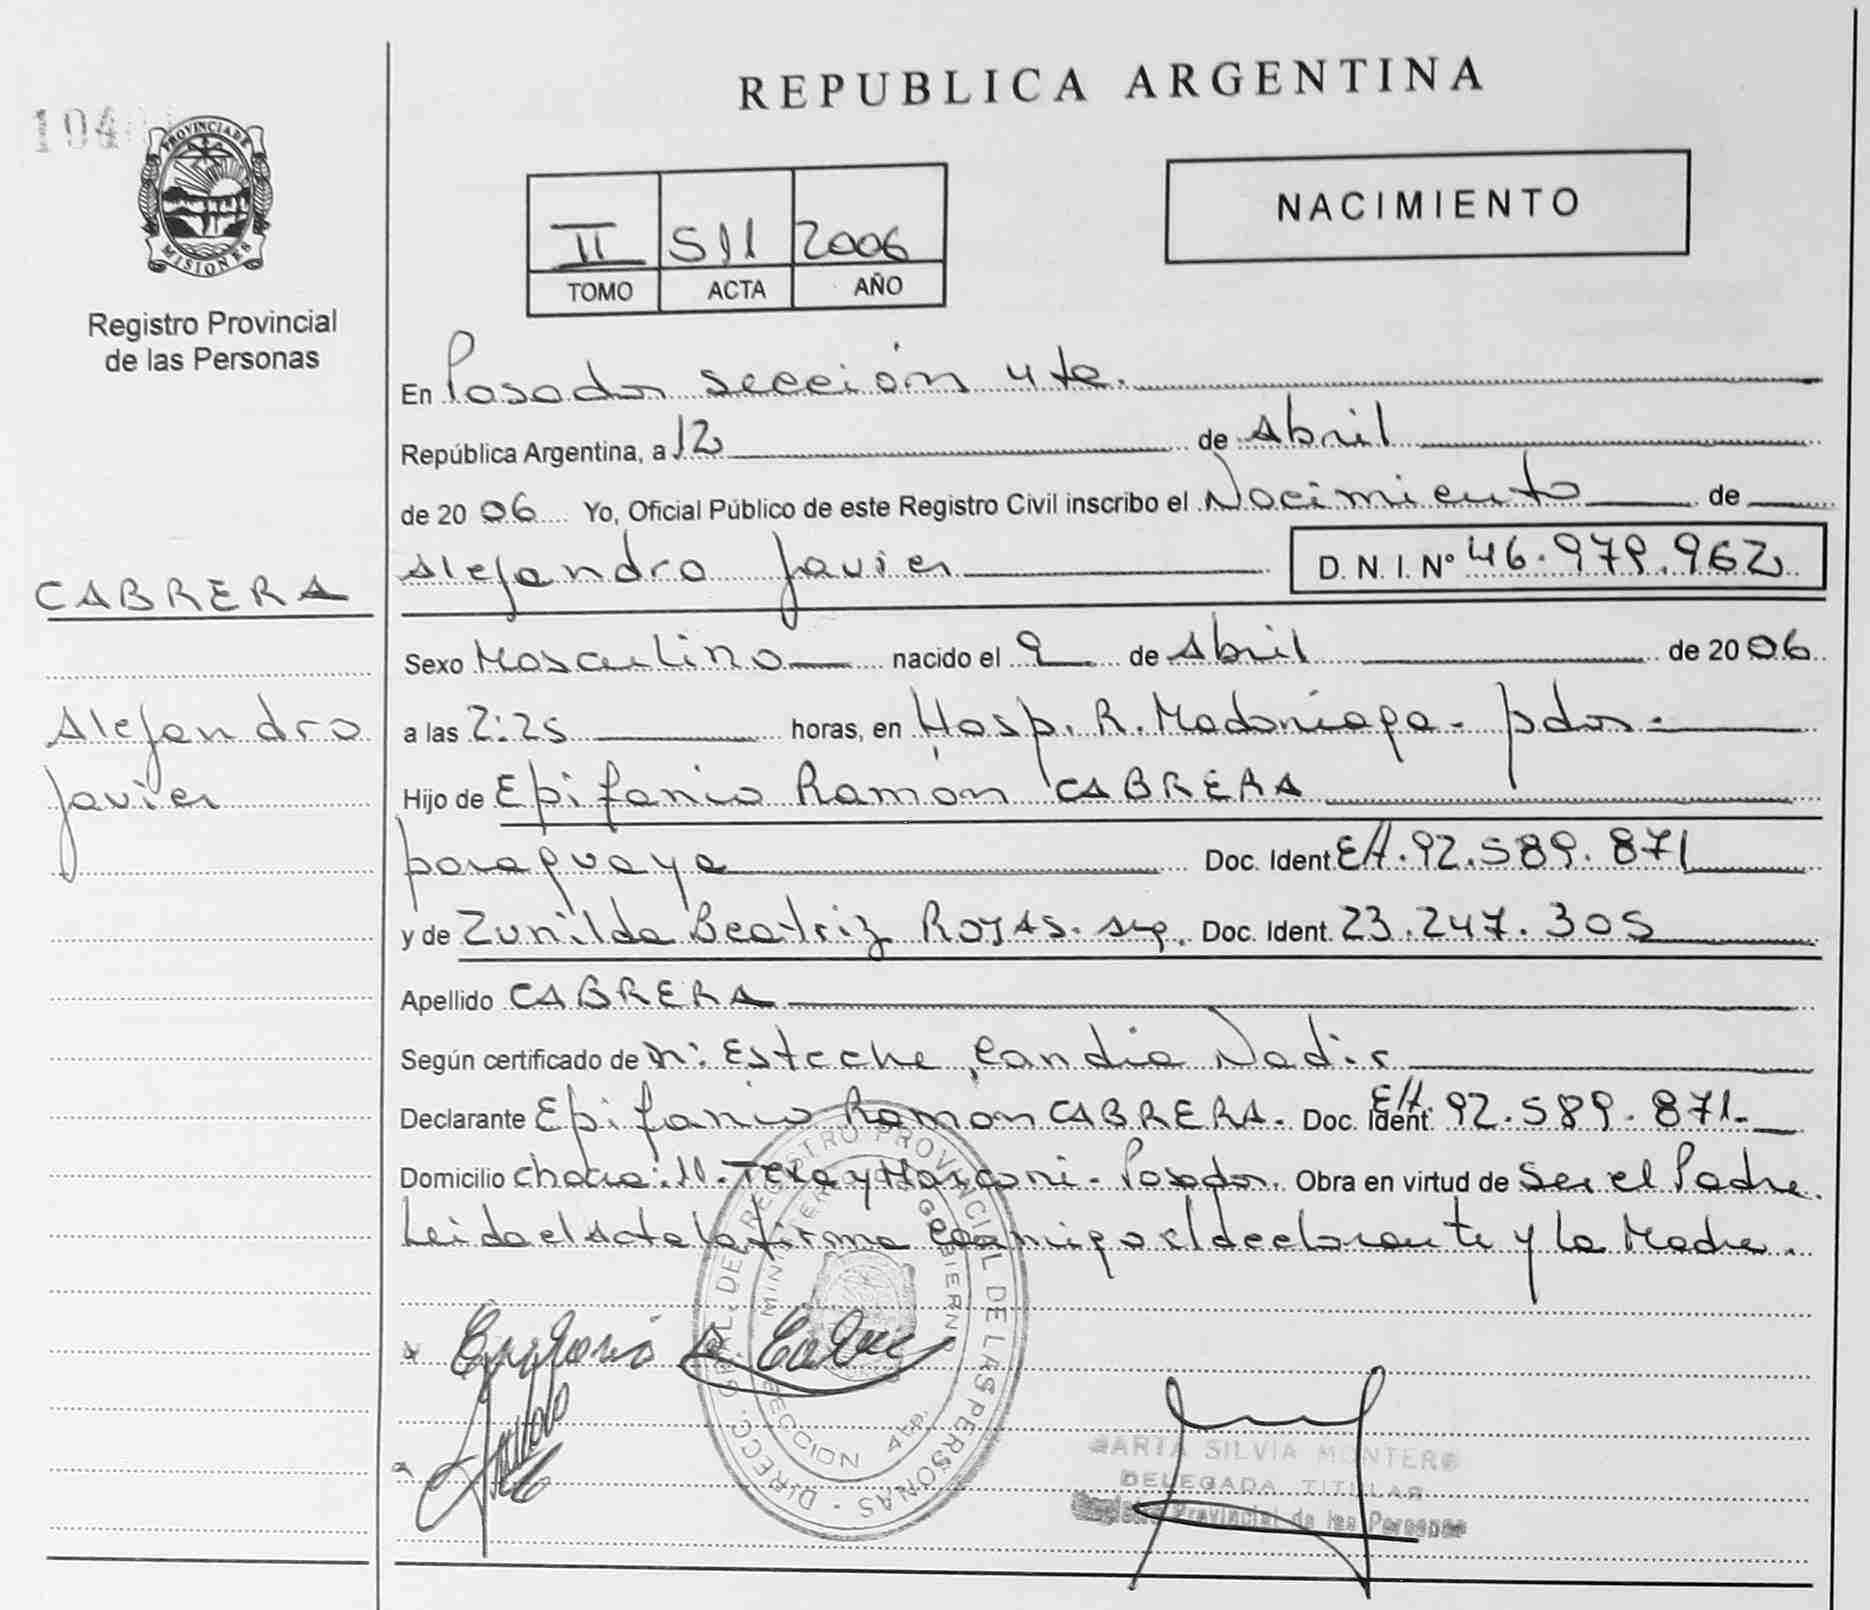 REPUBLICA ARGENTINA
104
PROVINCIA DE
MISIONES
Registro Provincial
de las Personas
NACIMIENTO
II 511 2006
TOMO ACTA AÑO
En Posadas sección 4ta.
República Argentina, a 12 de Abril
de 2006 Yo, Oficial Público de este Registro Civil inscribo el Nacimiento de
Alejandro Javier D. N. I. Nº 46.979.962
CABRERA
Sexo Masculino nacido el 9 de Abril de 2006
Alejandro
Javier
a las 2:25 horas, en Hosp. R. Madariaga - pdas -
Hijo de Epifanio Ramón CABRERA
paraguaya Doc. Ident. EH. 92.589.871
y de Zunilda Beatriz ROJAS. arg. Doc. Ident. 23.247.305
Apellido CABRERA
Según certificado de Esteche Candia Nadir
Declarante Epifanio Ramon CABRERA. Doc. Ident. EH. 92.589.871.
Domicilio chacra: 11. y Marconi - Posadas. Obra en virtud de Ser el Padre.
Leida el Acta la firma conmigo el declarante y la Madre.
DIRECC. GRAL. DE REGISTRO PROVINCIAL DE LAS PERSONAS
SECCION 4ta.
MARTA SILVIA MONTERO
DELEGADA TITULAR
Registro Provincial de las Personas